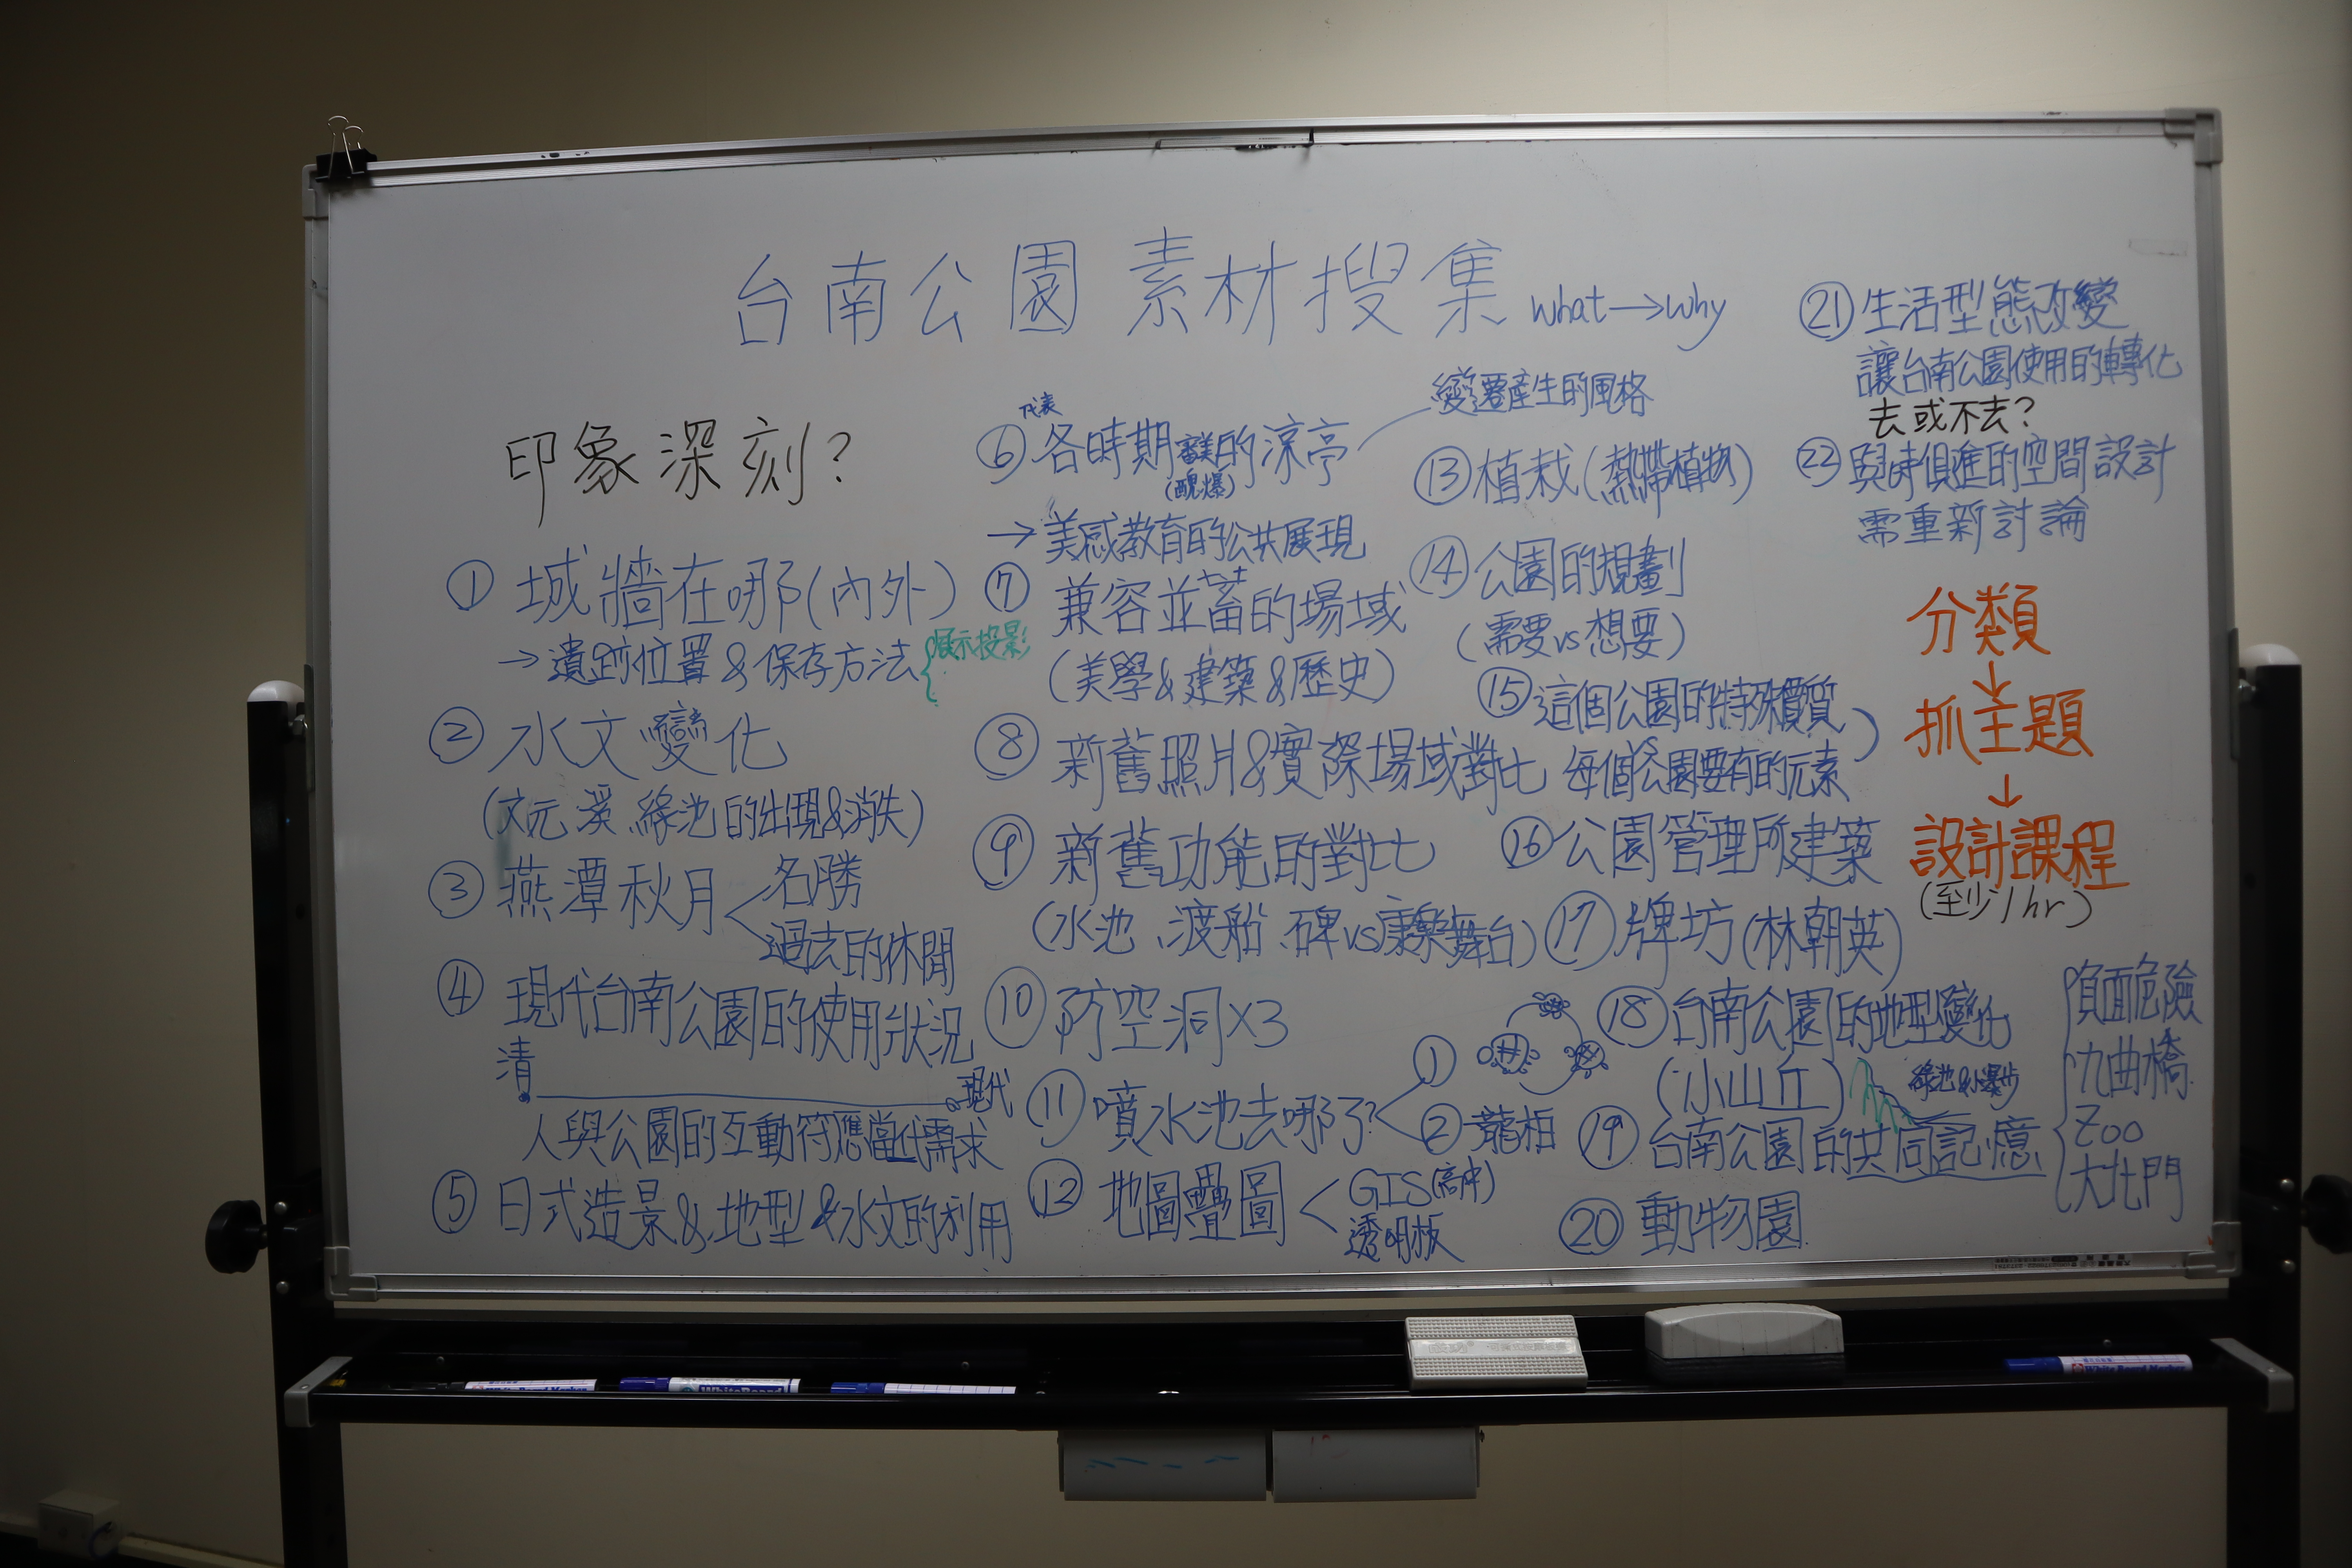 台南公園 素材搜集 what→why
印象深刻?
① 城牆在哪(內外)
→遺跡位置&保存方法{展示投影
② 水文變化
(文元溪、綠池的出現&消失)
③ 燕潭秋月<名勝
過去的休閒
④ 現代台南公園的使用狀況
清 現代
人與公園的互動符應當代需求
⑤ 日式造景&地型&水文的利用
代表
⑥ 各時期審美的涼亭
(醜爆)
變遷產生的風格
→美感教育的公共展現
⑦ 兼容並蓄的場域
(美學&建築&歷史)
⑧ 新舊照片&實際場域對比
⑨ 新舊功能的對比
(水池、渡船、碑vs康樂舞台)
⑩ 防空洞x3
⑪ 噴水池去哪了?<①
②龍柏
⑫ 地圖疊圖<GIS(高中)
透明板
⑬ 植栽(熱帶植物)
⑭ 公園的規劃
(需要vs想要)
⑮ 這個公園的特殊價質
每個公園要有的元素
⑯ 公園管理所建築
⑰ 牌坊(林朝英)
⑱ 台南公園的地型變化
(小山丘)
⑲ 台南公園的共同記憶
負面危險
九曲橋
Zoo
大北門
⑳ 動物園
㉑ 生活型態改變
讓台南公園使用的轉化
去或不去?
㉒ 與時俱進的空間設計
需重新討論
分類
↓
抓主題
↓
設計課程
(至少1hr)
WhiteBoard
White Board Marker